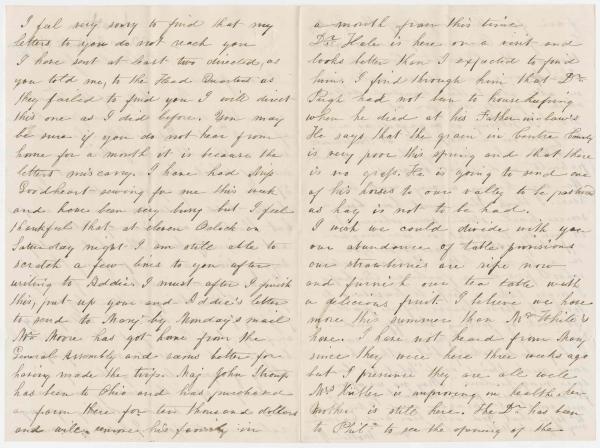 I feel very sorry to find that my
letters to you do not reach you
I have sent at least two directed, as
you told me, to the Head Quarters as
they failed to find you I will direct
this one as I did before. You may
be sure if you do not hear from
home for a month it is because the
letters miscarry. I have had Miss
Goodheart sewing for me this week
and have been very busy but I feel
thankful that at eleven Oclock on
Saturday night I am still able to
scratch a few lines to you after
writing to Addie. I must after I finish
this, put up your and Addie's letter
to send to Mary by Monday's mail
Mr Moore has got home from the
General Assembly and seems better for
having made the trip. Maj John
has been to Ohio and has purchased
a farm there for ten thousand dollars
and will remove his family in
a month from this time
Dr. Hale is here on a visit and
looks better than I expected to find
him. I find through him that Dr
Pugh had not been to housekeeping
when he died at his Father in laws
He says that the grain in Centre County
is very poor this spring and that there
is no grass. He is going to send one
of his horses to our valley to be pastured
as hay is not to be had.
I wish we could divide with you
our abundance of table provisions
our strawberries are ripe now
and furnish our tea table with
a delicious fruit. I believe we have
more this summer than Mr White's
have. I have not heard from Mary
since they were here three weeks ago
but I presume they are all well
Mrs is improving in health her
mother is still here. The Dr. has been
to Phila to see the opening of the